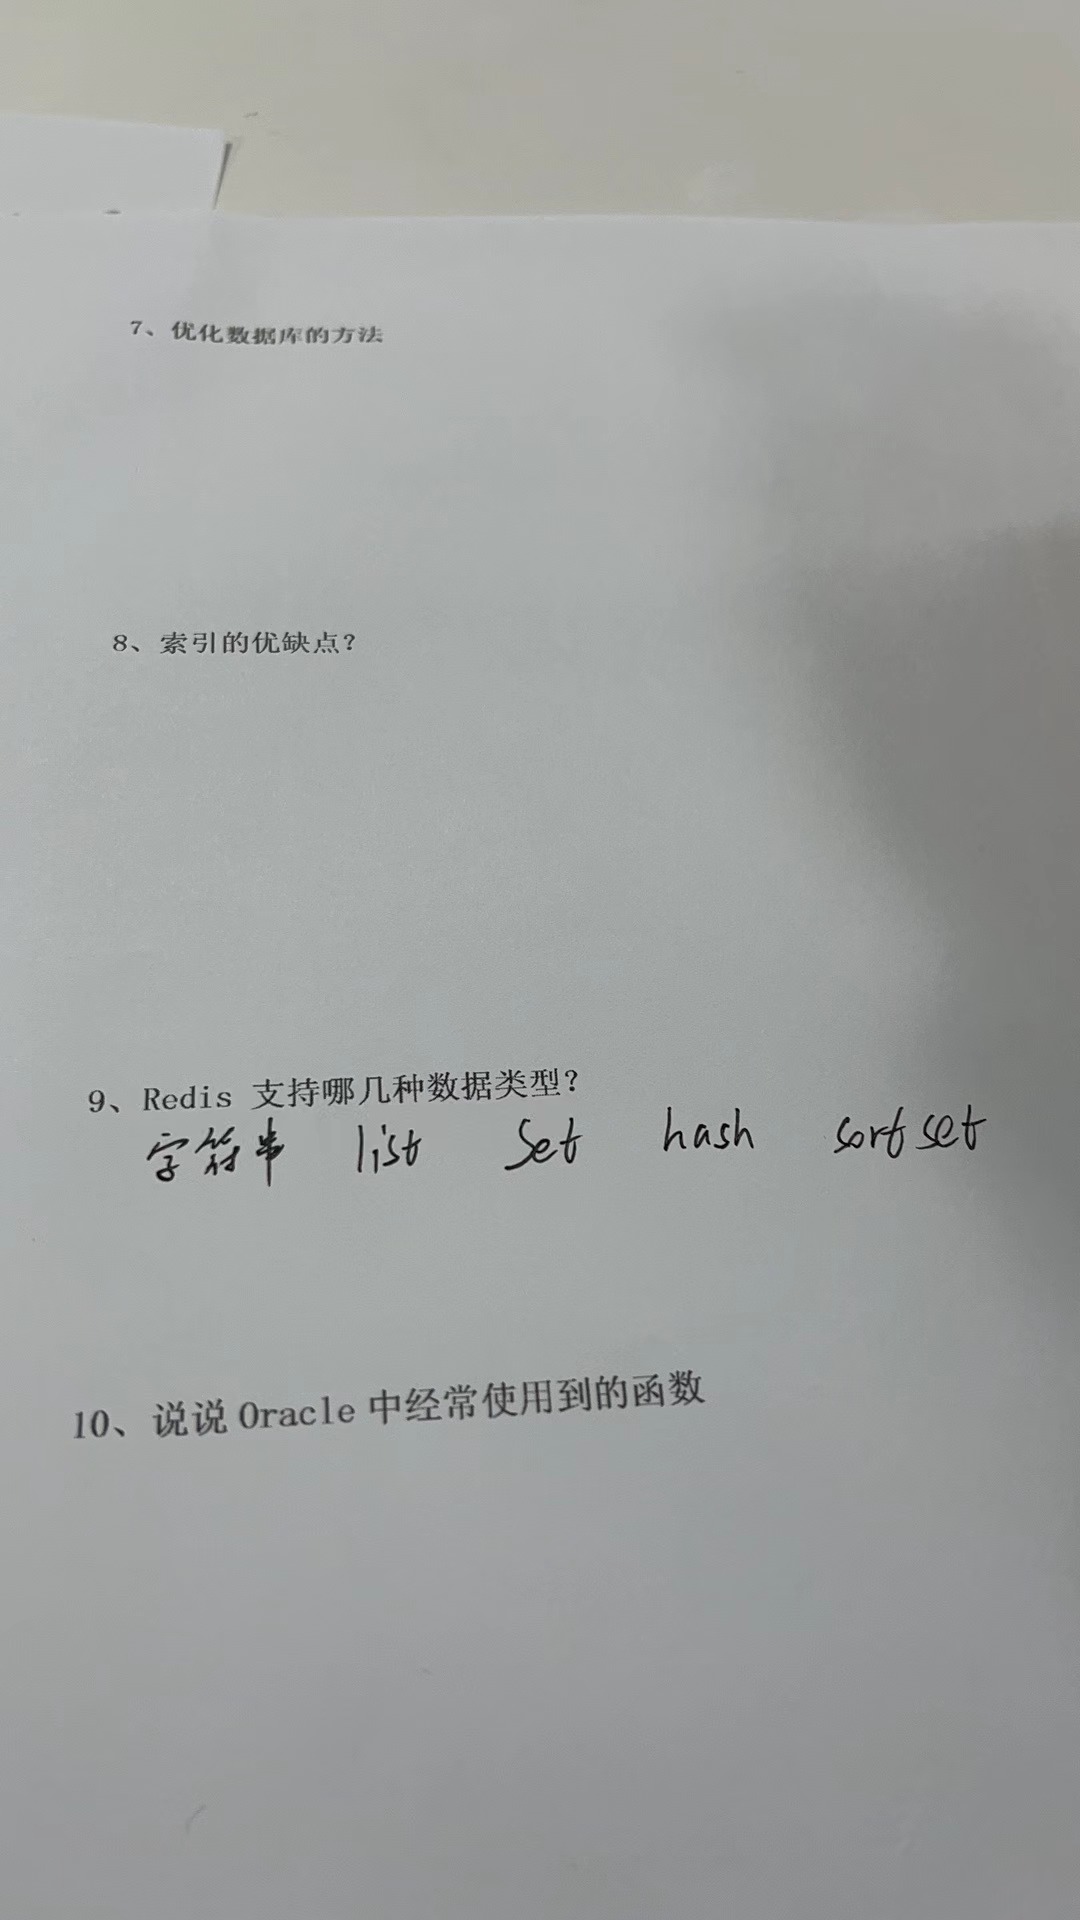 7、优化数据库的方法
8、索引的优缺点？
9、Redis 支持哪几种数据类型？
字符串 list Set hash sort set
10、说说 Oracle 中经常使用到的函数